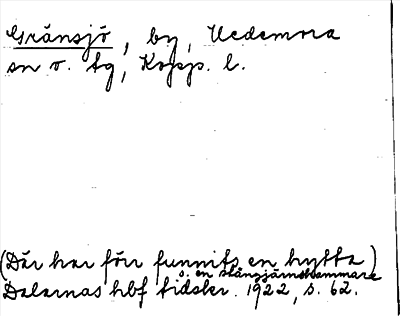 Gränsjö, by, Vedemora
sn o. tg, Kopp. l.
(Där har förr funnits en hytta)
o. en stångjärnshammare
Dalarnas hbf tidskr. 1922, s. 62.